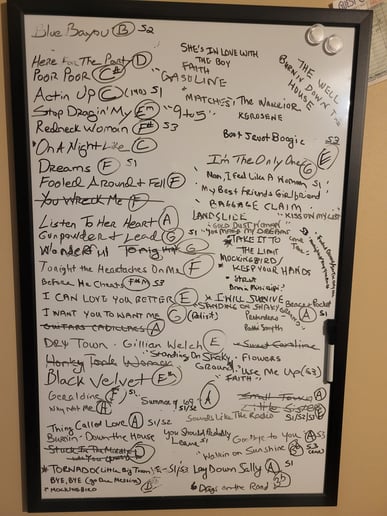 Blue Bayou B S2
Here For The Party D
Poor Poor C#
Actin Up C S1
Stop Draggin' My Em
Redneck Woman F# S3
On A Night Like C
Dreams F S1
Fooled Around & Fell F
You Wreck Me F
Listen To Her Heart A
Gunpowder & Lead G
Wonderful Tonight G
Tonight the Heartaches On Me F
Before He Cheats F#m S3
I CAN LOVE YOU BETTER E
I WANT YOU TO WANT ME G
GUITARS CADILLACS A
DRY TOWN - Gillian Welch E
Honky Tonk Woman
Black Velvet Em
Geraldine F S1
WHY NOT ME A
Summer of '69 - A S1/S2
Thing Called Love A S1
Burnin' Down the House
Stuck In The Middle
* TORNADO (Little Big Town) E - S1/S3
BYE, BYE (Jo Dee Messina)
* MOCKINGBIRD
SHE'S IN LOVE WITH
THE BOY
FAITH
GASOLINE
MATCHES
"9 to 5"
The Warrior
KEROSENE
THE WELL
BURNIN' DOWN THE
HOUSE
Boot Scoot Boogie S3
I'm The Only One G E
Man, I Feel Like A Woman S1
My Best Friends Girlfriend
BAGGAGE CLAIM
LANDSLIDE
"KISS ON MY LIST
"GOLD DUST WOMAN"
YOU MAKE MY DREAMS
COME TRUE
* TAKE IT TO
THE LIMIT
MOCKINGBIRD/
* KEEP YOUR HANDS
* Strut
* I WILL SURVIVE
STANDING ON SHAKY GROUND
Pretenders -
Patti Smyth
A S1
Sweet Caroline
"Standing On Shaky
Ground"
FLOWERS
"Use Me Up (S3)
FAITH"
Small Town A
Little Sister
Sounds Like The Rodeo S1/S2 E
You Should Probably
Leave S1
Goodbye to You A S3
Walkin on Sunshine
Lay Down Sally A S1
6 Days on the Road